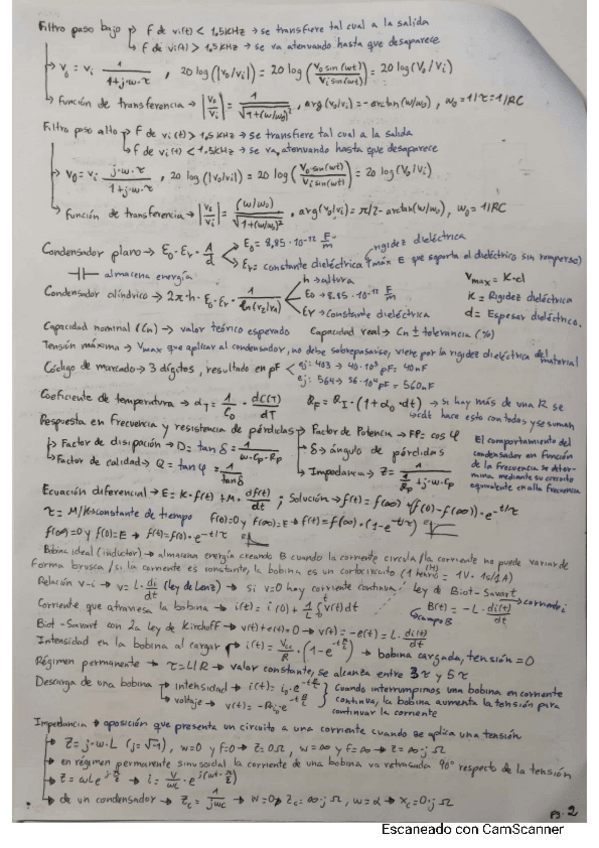 Filtro paso bajo → F de vi(t) < 1,5KHz → se transfiere tal cual a la salida
↳ F de vi(t) > 1,5KHz → se va atenuando hasta que desaparece
→ v₀ = vᵢ 1/(1+j·w·τ) , 20 log(|v₀/vᵢ|) = 20 log(v₀ sin(wt)/vᵢ sin(wt)) = 20 log(V₀/Vᵢ)
↳ Función de transferencia → |v₀/vᵢ| = 1/√(1+(w/w₀)²) , arg(v₀/vᵢ) = -arctan(w/w₀), w₀ = 1/τ = 1/RC
Filtro paso alto → F de vi(t) > 1,5 KHz → se transfiere tal cual a la salida
↳ F de vi(t) < 1.5KHz → se va atenuando hasta que desaparece
→ v₀ = vᵢ j·w·τ/(1+j·w·τ) , 20 log(|v₀/vi|) = 20 log(v₀·sin(wt)/vᵢ sin(wt)) = 20 log(V₀/Vᵢ)
↳ Función de transferencia → |v₀/vᵢ| = (w/w₀)/√(1+(w/w₀)²) , arg(v₀/vᵢ) = π/2 - arctan(w/w₀), w₀ = 1/RC
Condensador plano → E₀·Eᵣ·A/d E₀ = 8,85·10⁻¹² F/m rigidez dieléctrica
Eᵣ = constante dieléctrica (máx E que soporta el dieléctrico sin romperse)
⊣⊢ almacena energía
Condensador cilíndrico → 2π·h·E₀·Eᵣ·1/ln(r₂/r₁) h → altura
E₀ → 8.85·10⁻¹² F/m
Er → constante dieléctrica
Vmax = K·d
K = Rigidez dieléctrica
d = Espesor dieléctrico.
Capacidad nominal (Cn) → valor teórico esperado Capacidad real → Cn ± tolerancia (%)
Tensión máxima → Vmax que aplicar al condensador, no debe sobrepasarse, viene por la rigidez dieléctrica del material
Código de marcado → 3 dígitos, resultado en pF ej: 403 → 40·10³ pF = 40nF
ej: 564 → 56·10⁴ pF = 560nF
Coeficiente de temperatura → α_T = 1/C₀ · dC(T)/dT R_F = R_I·(1+α₀·dt) → si hay más de una R se
hace esto con todas y se suman
Respuesta en frecuencia y resistencia de pérdidas → Factor de Potencia → FP = cos φ
→ Factor de disipación → D = tan δ = 1/(w·Cp·Rp) → δ → ángulo de pérdidas
↳ Factor de calidad → Q = tan φ = 1/tan δ ↳ Impedancia → Z = 1/(1/Rp + j·w·Cp)
El comportamiento del
condensador en función
de la frecuencia se deter-
mina mediante su circuito
equivalente en alta frecuencia
Ecuación diferencial → E = K·f(t) + M·df(t)/dt ; Solución → f(t) = f(∞) + (f(0) - f(∞))·e^(-t/τ)
τ = M/K → constante de tiempo f(0) = 0 y f(∞) = E → f(t) = f(∞)·(1-e^(-t/τ))
f(∞) = 0 y f(0) = E → f(t) = f(0)·e^(-t/τ)
Bobina ideal (inductor) → almacena energía creando B cuando la corriente circula / la corriente no puede variar de
forma brusca / si la corriente es constante, la bobina es un cortocircuito (1 henrio (H) = 1V·1s/1A)
Relación v-i → v = L·di/dt (ley de Lenz) → si v=0 hay corriente continua / ley de Biot-Savart
Corriente que atraviesa la bobina → i(t) = i(0) + 1/L ∫₀ᵗ v(t) dt B(t) = -L·di(t)/dt → corriente
↳ campo B
Biot-Savart con 2a ley de Kirchoff → v(t)+e(t)=0 → v(t) = -e(t) = L·di(t)/dt
Intensidad en la bobina al cargar → i(t) = /R·(1-e^(-t·R/L)) → bobina cargada, tensión = 0
Régimen permanente → τ = L/R → valor constante, se alcanza entre 3τ y 5τ
Descarga de una bobina → intensidad → i(t) = i₀·e^(-t·R/L)
↳ voltaje → v(t) = -R·i₀·e^(-t·R/L)
Cuando interrumpimos una bobina en corriente
continua, la bobina aumenta la tensión para
continuar la corriente
Impedancia → oposición que presenta un circuito a una corriente cuando se aplica una tensión
→ Z = j·w·L (j=√-1), w=0 y f=0 → Z=0Ω, w=∞ y f=∞ → Z=∞·j Ω
→ en régimen permanente sinusoidal la corriente de una bobina va retrasada 90° respecto de la tensión
→ Z = wLe^(j·π/2) → i = V/wL · e^(j(wt-π/2))
↳ de un condensador → Z_c = 1/jwc → w=0 → Z_c = ∞·j Ω, w=α → x_c = 0·j Ω
pg. 2
Escaneado con CamScanner